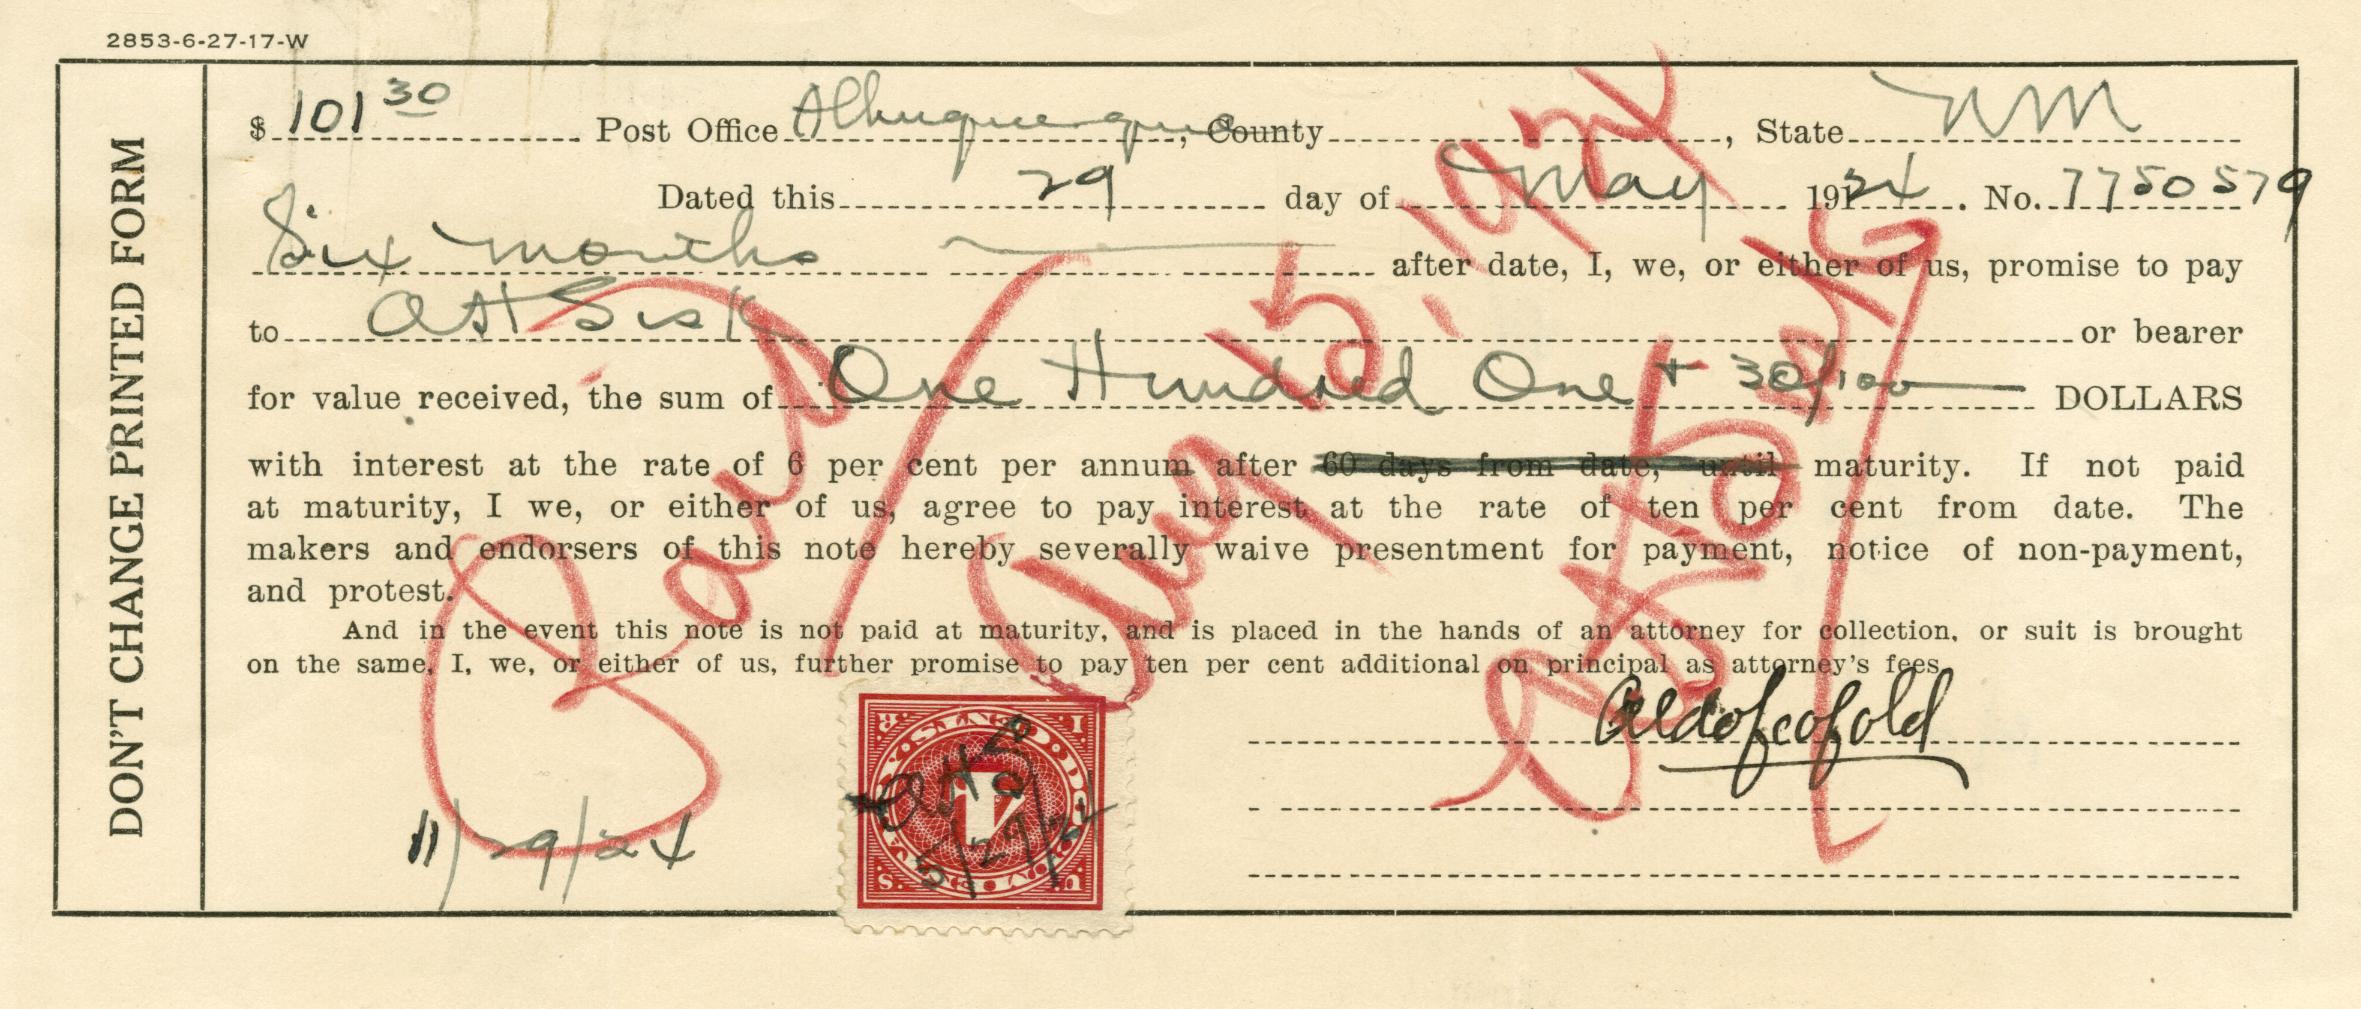 2853-6-27-17-W
DON'T CHANGE PRINTED FORM
$ 101 30 Post Office Albuquerque, County, State NM
Dated this 29 day of May 1924. No. 7750579
Six months after date, I, we, or either of us, promise to pay
to A H Sisk or bearer
for value received, the sum of One Hundred One + 30/100 DOLLARS
with interest at the rate of 6 per cent per annum after 60 days from date, until maturity. If not paid
at maturity, I we, or either of us, agree to pay interest at the rate of ten per cent from date. The
makers and endorsers of this note hereby severally waive presentment for payment, notice of non-payment,
and protest.
And in the event this note is not paid at maturity, and is placed in the hands of an attorney for collection, or suit is brought
on the same, I, we, or either of us, further promise to pay ten per cent additional on principal as attorney's fees.
Aldo Leopold
11/29/24
Paid
Aug 15, 1924
5/29/24